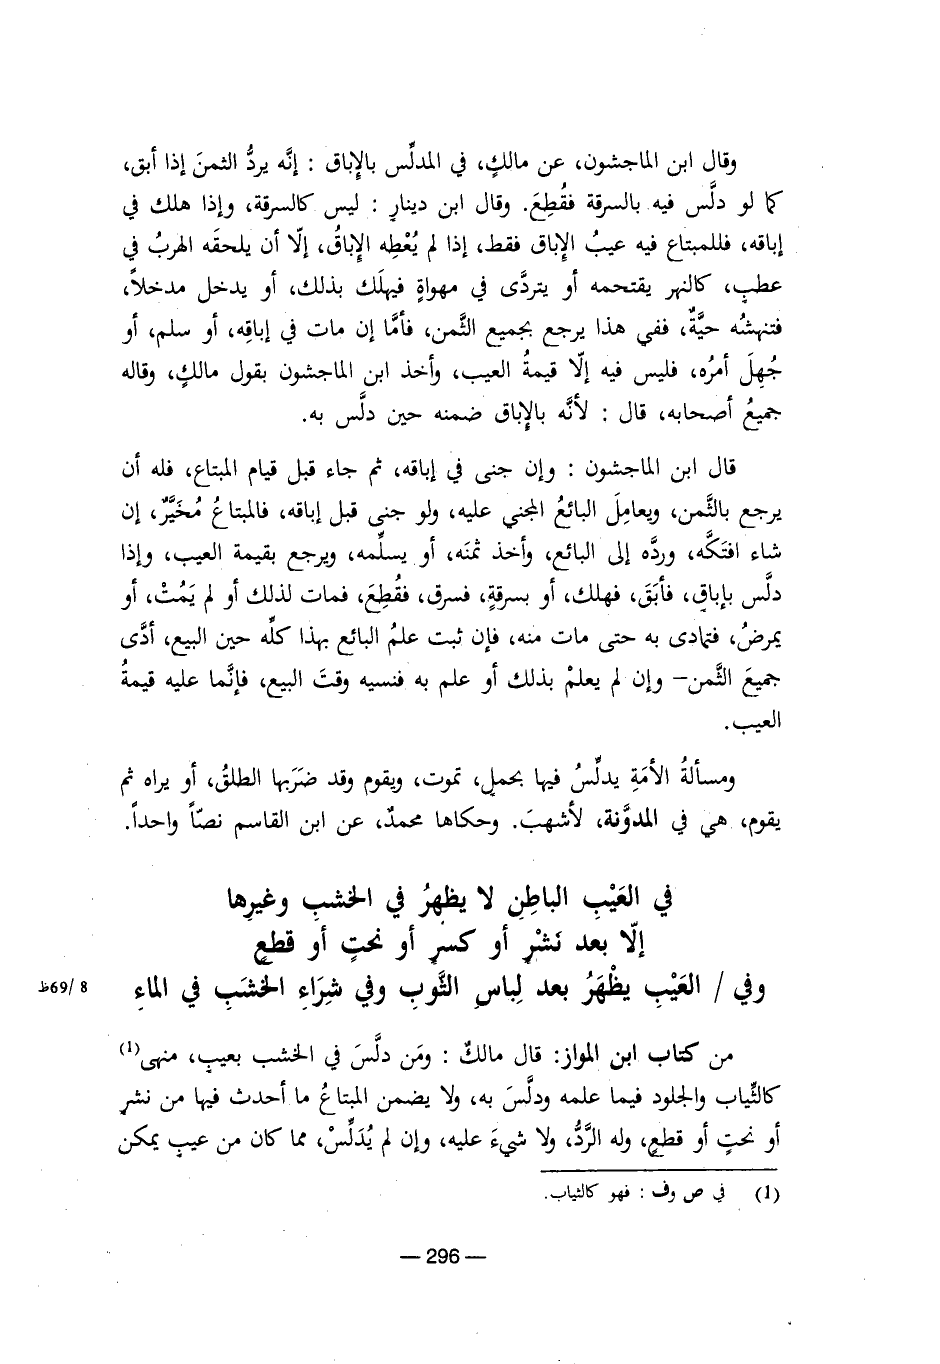 وقال ابن الماجشون، عن مالكٍ، في المدلِّس بالإِباق : إنَّه يردُّ الثمنَ إذا أبق،
كما لو دلَّس فيه بالسرقة فقُطِعَ. وقال ابن دينارٍ : ليس كالسرقة، وإذا هلك في
إباقه، فللمبتاع فيه عيبُ الإباق فقط، إذا لم يُعْطِه الإباقُ، إلّا أن يلحقَه الهربُ في
عطبٍ، كالنهر يقتحمه أو يتردَّى في مهواةٍ فيهلَك بذلك، أو يدخل مدخلاً،
فتنهشُه حيَّةٌ، ففي هذا يرجع بجميع الثَّمن، فأمَّا إن مات في إباقِه، أو سلم، أو
جُهِلَ أمرُه، فليس فيه إلّا قيمةُ العيب، وأخذ ابن الماجشون بقول مالكٍ، وقاله
جميعُ أصحابه، قال : لأنَّه بالإِباق ضمنه حين دلَّس به.
قال ابن الماجشون : وإن جنى في إباقه، ثم جاء قبل قيام المبتاع، فله أن
يرجع بالثَّمن، ويعامِلَ البائعُ المجني عليه، ولو جنى قبل إباقه، فالمبتاعُ مُخَيَّرٌ، إن
شاء افتَكَّه، وردَّه إلى البائع، وأخذ ثمنَه، أو يسلِّمه، ويرجع بقيمة العيب، وإذا
دلَّس بإباقٍ، فأبَقَ، فهلك، أو بسرقةٍ، فسرق، فقُطِعَ، فمات لذلك أو لم يَمُتْ، أو
يمرضُ، فتمادى به حتى مات منه، فإن ثبت علمُ البائع بهذا كلِّه حين البيع، أدَّى
جميعَ الثَّمن– وإن لم يعلمْ بذلك أو علم به فنسيه وقتَ البيع، فإنَّما عليه قيمةُ
العيب.
ومسألةُ الأمَةِ يدلِّسُ فيها بحملٍ، تموت، ويقوم وقد ضَرَبها الطلقُ، أو يراه ثم
يقوم، هي في المدوَّنة، لأشهبَ. وحكاها محمدٌ، عن ابن القاسم نصّاً واحداً.
في العَيْبِ الباطِنِ لا يظهرُ في الخشبِ وغيرِها
إلّا بعد نَشْرٍ أو كسرٍ أو نحتٍ أو قطعٍ
وفي / العَيْبِ يظْهَرُ بعد لِباسِ الثَّوبِ وفي شِرَاءِ الخشَبِ في الماءِ
8 /69ظ
من كتاب ابن المواز: قال مالكٌ : ومَن دلَّسَ في الخشب بعيبٍ، منهى(1)
كالثِّياب والجلود فيما علمه ودلَّسَ به، ولا يضمن المبتاعُ ما أحدث فيها من نشرٍ
أو نحتٍ أو قطعٍ، وله الرَّدُّ، ولا شيءَ عليه، وإن لم يُدَلِّسْ، مما كان من عيبٍ يمكن
(1) في ص وف : فهو كالثياب.
— 296 —